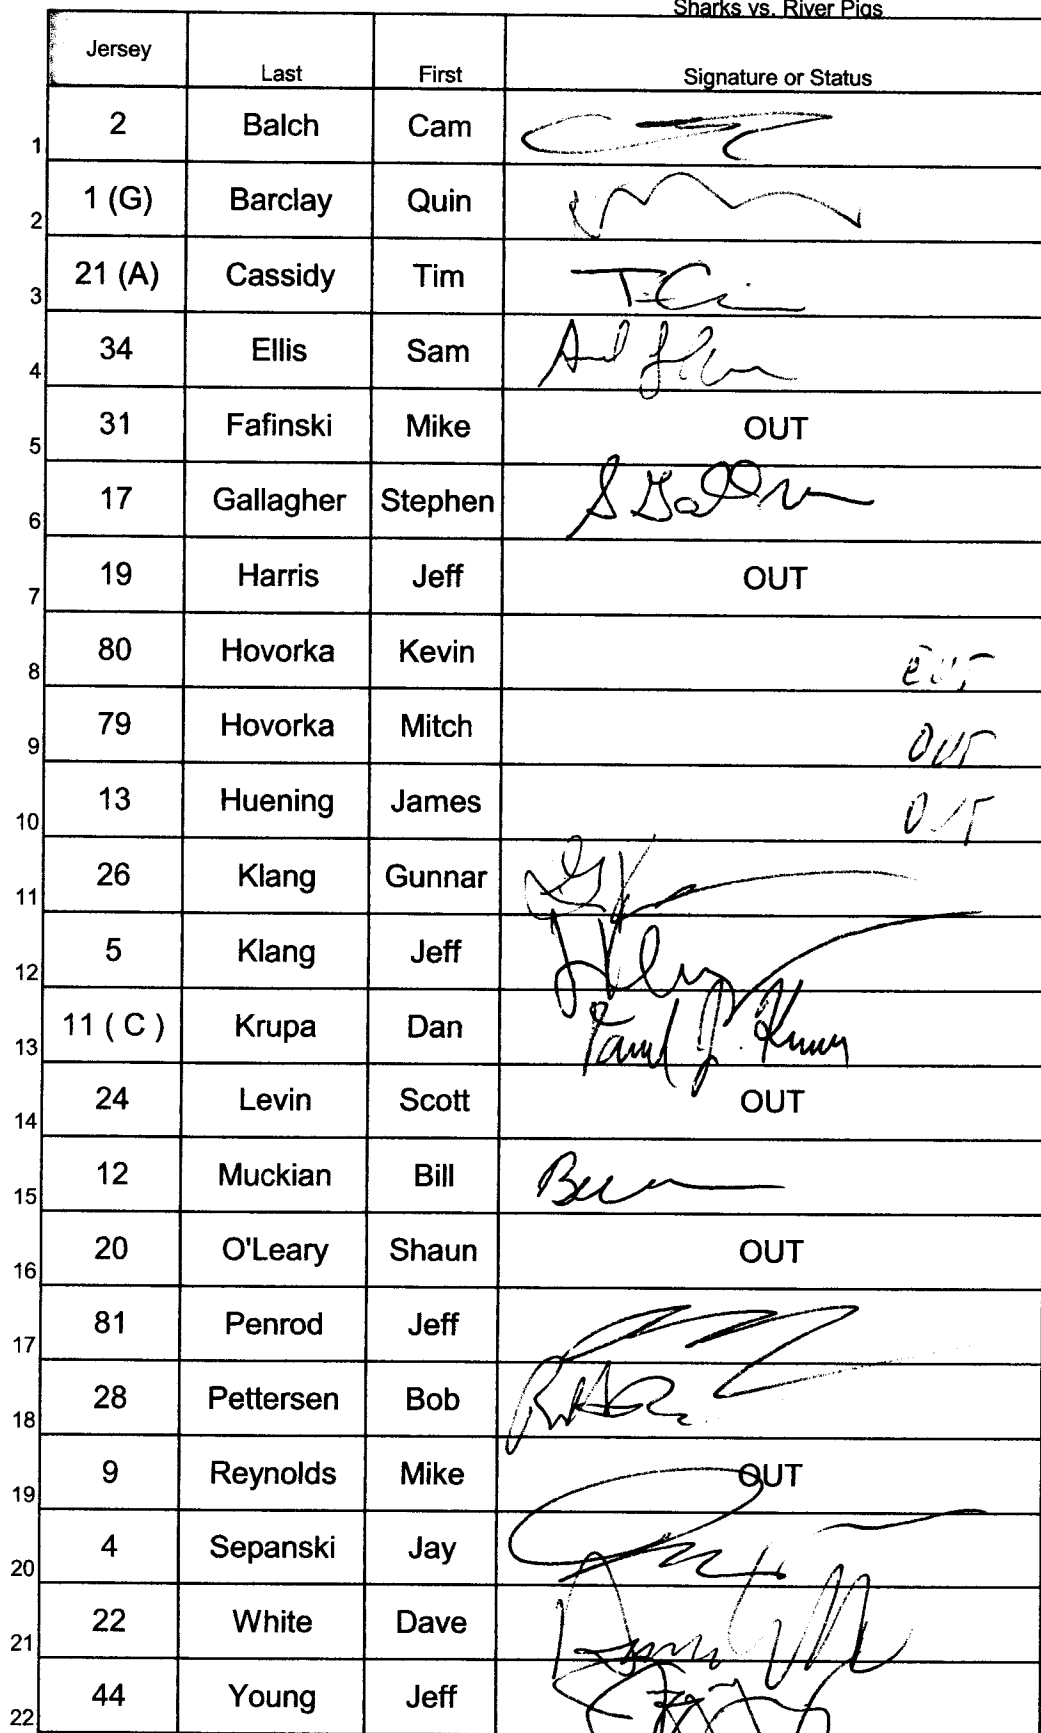 Sharks vs. River Pigs
Jersey Last First Signature or Status
1 2 Balch Cam
2 1 (G) Barclay Quin
3 21 (A) Cassidy Tim
4 34 Ellis Sam
5 31 Fafinski Mike OUT
6 17 Gallagher Stephen
7 19 Harris Jeff OUT
8 80 Hovorka Kevin OUT
9 79 Hovorka Mitch OUT
10 13 Huening James OUT
11 26 Klang Gunnar
12 5 Klang Jeff
13 11 ( C ) Krupa Dan
14 24 Levin Scott OUT
15 12 Muckian Bill
16 20 O'Leary Shaun OUT
17 81 Penrod Jeff
18 28 Pettersen Bob
19 9 Reynolds Mike OUT
20 4 Sepanski Jay
21 22 White Dave
22 44 Young Jeff